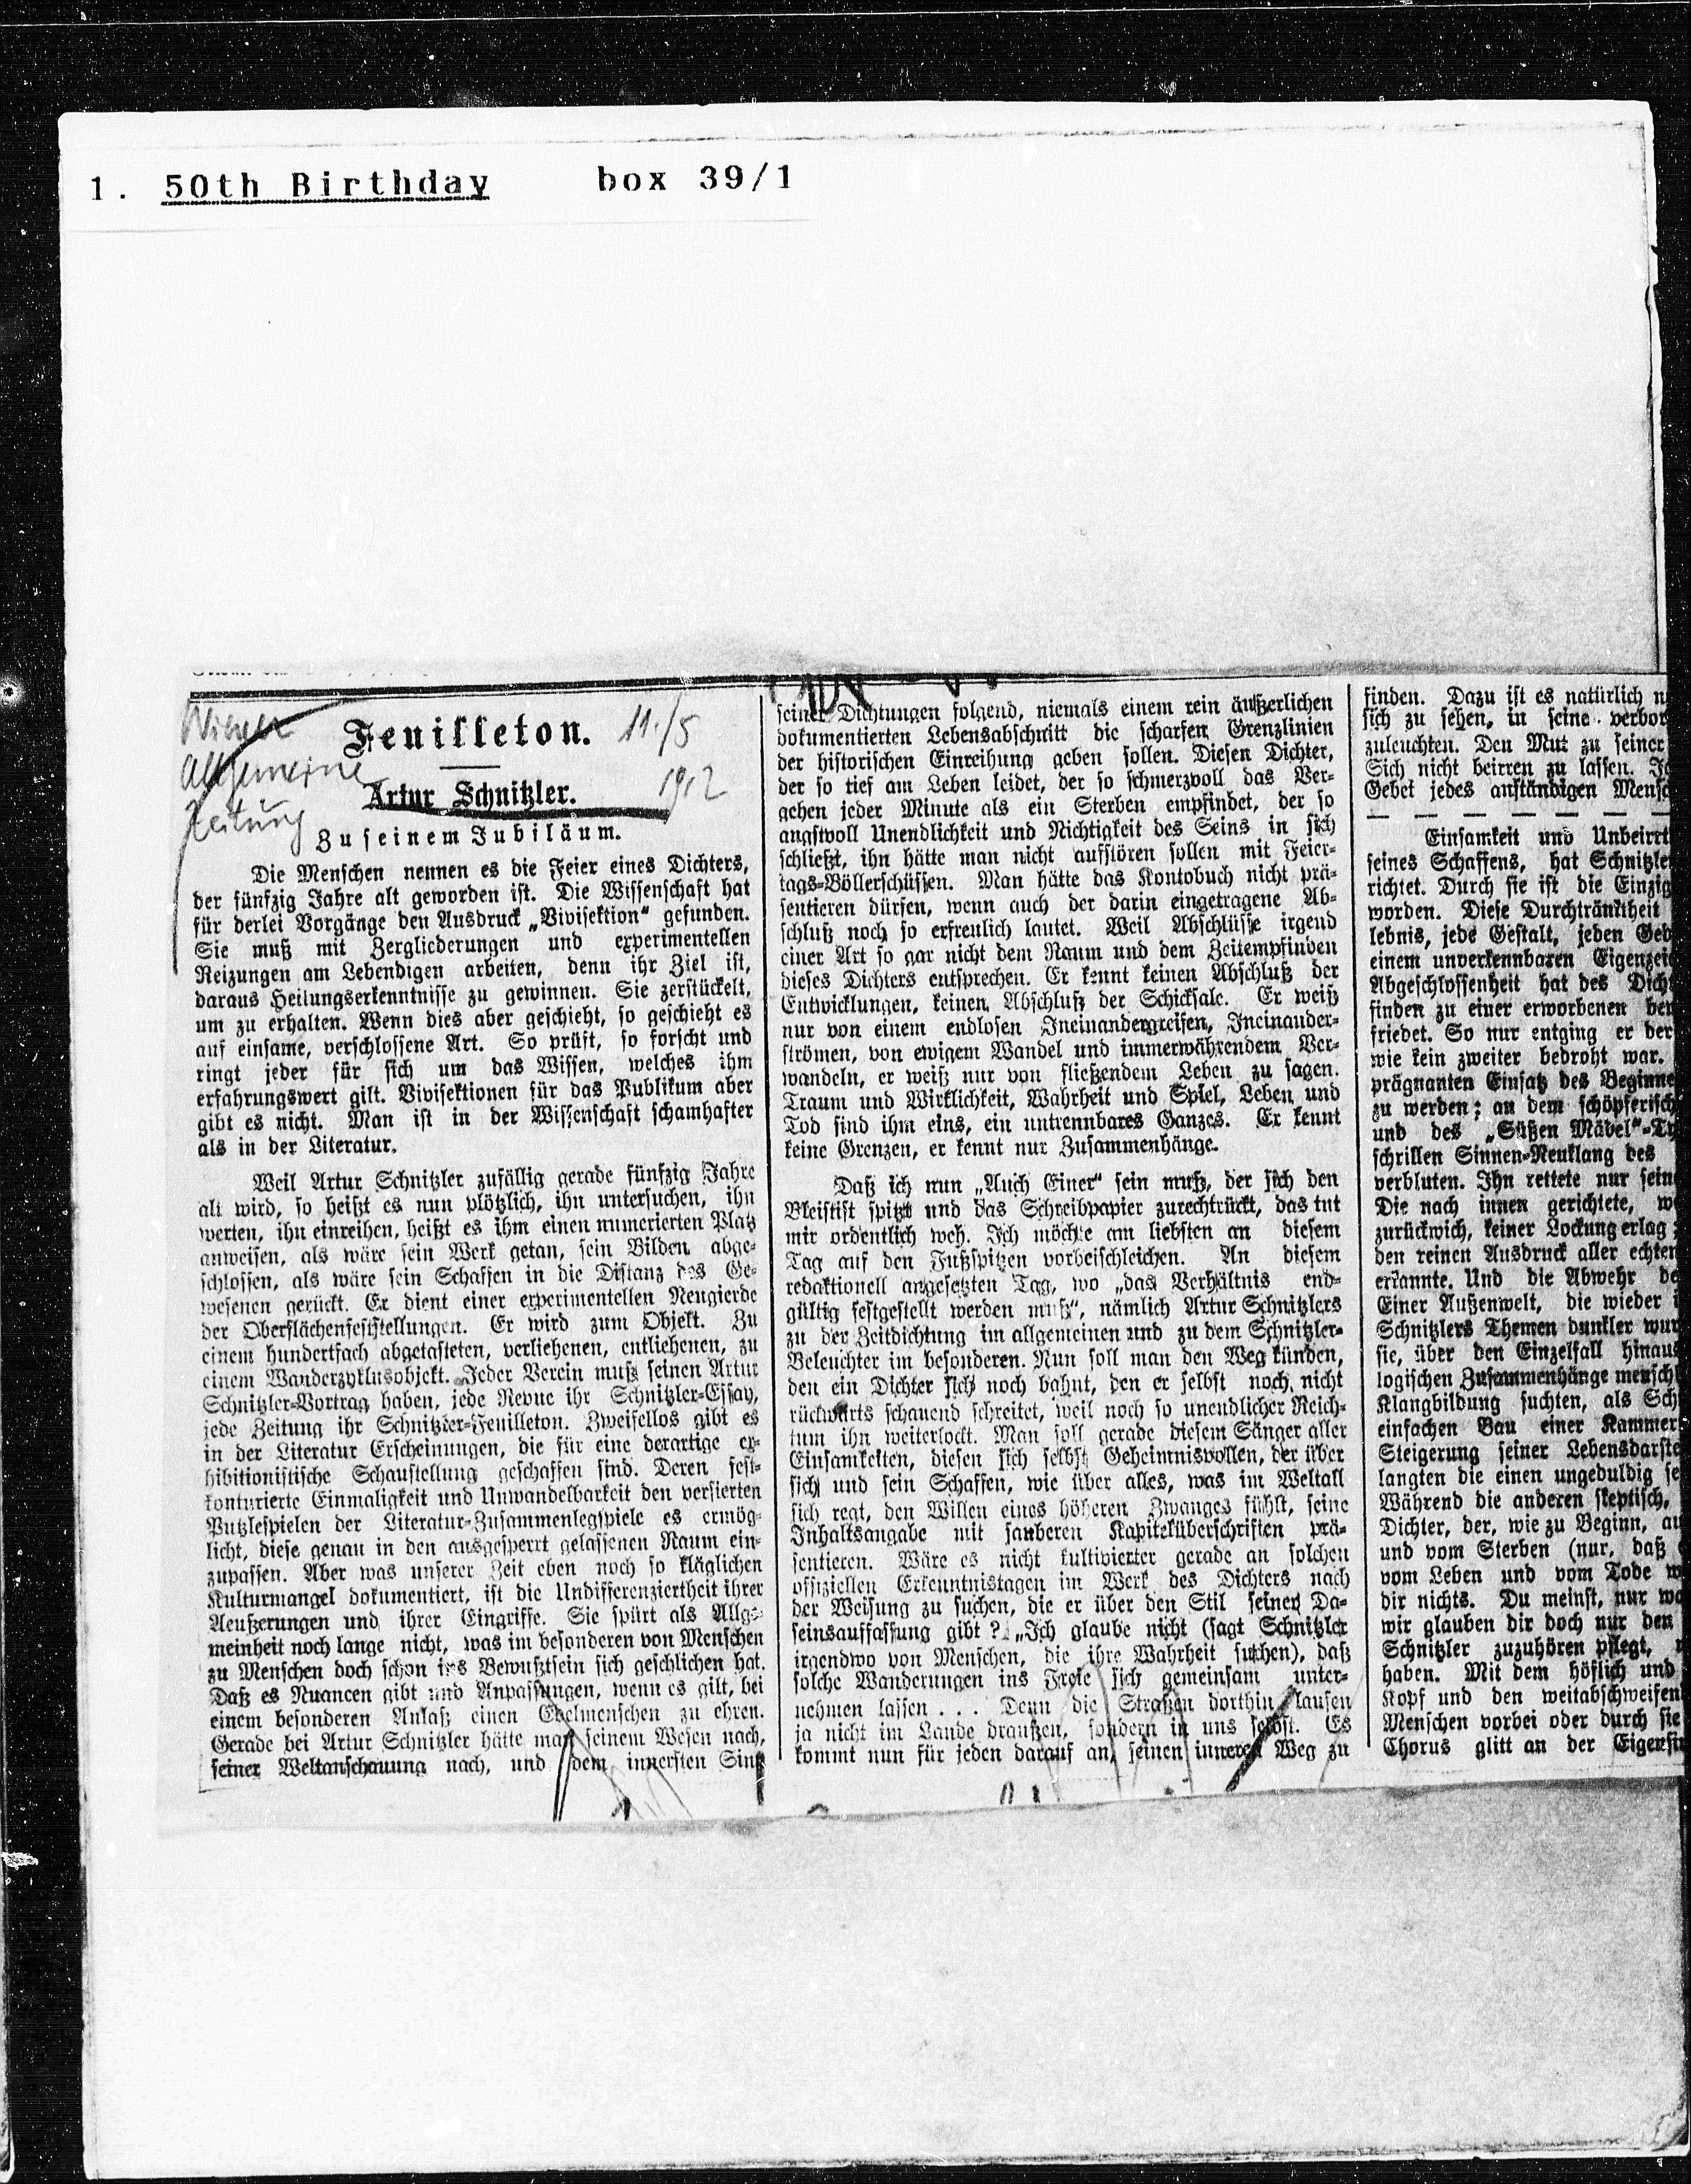 1. 50th Birthday box 39/1
Wiener
Allgemeine
Zeitung
11./5
1912
Feuilleton.
Artur Schnitzler.
Zu seinem Jubiläum.
Die Menschen nennen es die Feier eines Dichters,
der fünfzig Jahre alt geworden ist. Die Wissenschaft hat
für derlei Vorgänge den Ausdruck „Vivisektion“ gefunden.
Sie muß mit Zergliederungen und experimentellen
Reizungen am Lebendigen arbeiten, denn ihr Ziel ist,
daraus Heilungserkenntnisse zu gewinnen. Sie zerstückelt,
um zu erhalten. Wenn dies aber geschieht, so geschieht es
auf einsame, verschlossene Art. So prüft, so forscht und
ringt jeder für sich um das Wissen, welches ihm
erfahrungswert gilt. Vivisektionen für das Publikum aber
gibt es nicht. Man ist in der Wissenschaft schamhafter
als in der Literatur.
Weil Artur Schnitzler zufällig gerade fünfzig Jahre
alt wird, so heißt es nun plötzlich, ihn untersuchen, ihn
werten, ihn einreihen, heißt es ihm einen numerierten Platz
anweisen, als wäre sein Werk getan, sein Bilden abge-
schlossen, als wäre sein Schaffen in die Distanz des Ge-
wesenen gerückt. Er dient einer experimentellen Neugierde
der Oberflächenfeststellungen. Er wird zum Objekt. Zu
einem hundertfach abgetasteten, verliehenen, entliehenen, zu
einem Wanderzyklusobjekt. Jeder Verein muß seinen Artur
Schnitzler-Vortrag haben, jede Revue ihr Schnitzler-Essay,
jede Zeitung ihr Schnitzler-Feuilleton. Zweifellos gibt es
in der Literatur Erscheinungen, die für eine derartige ex-
hibitionistische Schaustellung geschaffen sind. Deren fest-
konturierte Einmaligkeit und Unwandelbarkeit den versierten
Putzlespielen der Literatur-Zusammenlegspiele es ermög-
licht, diese genau in den ausgesperrt gelassenen Raum ein-
zupassen. Aber was unserer Zeit eben noch so kläglichen
Kulturmangel dokumentiert, ist die Undifferenziertheit ihrer
Aeußerungen und ihrer Eingriffe. Sie spürt als Allge-
meinheit noch lange nicht, was im besonderen von Menschen
zu Menschen doch schon ins Bewußtsein sich geschlichen hat.
Daß es Nuancen gibt und Anpassungen, wenn es gilt, bei
einem besonderen Anlaß einen Edelmenschen zu ehren.
Gerade bei Artur Schnitzler hätte man seinem Wesen nach,
seiner Weltanschauung nach, und dem innersten Sinn
seiner Dichtungen folgend, niemals einem rein äußerlichen
dokumentierten Lebensabschnitt die scharfen Grenzlinien
der historischen Einreihung geben sollen. Diesen Dichter,
der so tief am Leben leidet, der so schmerzvoll das Ver-
gehen jeder Minute als ein Sterben empfindet, der so
angstvoll Unendlichkeit und Nichtigkeit des Seins in sich
schließt, ihn hätte man nicht aufstören sollen mit Feier-
tags-Böllerschüssen. Man hätte das Kontobuch nicht prä-
sentieren dürfen, wenn auch der darin eingetragene Ab-
schluß noch so erfreulich lautet. Weil Abschlüsse irgend
einer Art so gar nicht dem Raum und dem Zeitempfinden
dieses Dichters entsprechen. Er kennt keinen Abschluß der
Entwicklungen, keinen Abschluß der Schicksale. Er weiß
nur von einem endlosen Ineinandergreifen, Ineinander-
strömen, von ewigem Wandel und immerwährendem Ver-
wandeln, er weiß nur von fließendem Leben zu sagen.
Traum und Wirklichkeit, Wahrheit und Spiel, Leben und
Tod sind ihm eins, ein untrennbares Ganzes. Er kennt
keine Grenzen, er kennt nur Zusammenhänge.
Daß ich nun „Auch Einer“ sein muß, der sich den
Bleistift spitzt und das Schreibpapier zurechtrückt, das tut
mir ordentlich weh. Ich möchte am liebsten an diesem
Tag auf den Fußspitzen vorbeischleichen. An diesem
redaktionell angesetzten Tag, wo „das Verhältnis end-
gültig festgestellt werden muß“, nämlich Artur Schnitzlers
zu der Zeitdichtung im allgemeinen und zu dem Schnitzler-
Beleuchter im besonderen. Nun soll man den Weg künden,
den ein Dichter sich noch bahnt, den er selbst noch nicht
rückwärts schauend schreitet, weil noch so unendlicher Reich-
tum ihn weiterlockt. Man soll gerade diesem Sänger aller
Einsamkeiten, diesen sich selbst Geheimnisvollen, der über
sich und sein Schaffen, wie über alles, was im Weltall
sich regt, den Willen eines höheren Zwanges fühlt, seine
Inhaltsangabe mit sauberen Kapitelüberschriften prä-
sentieren. Wäre es nicht kultivierter gerade an solchen
offiziellen Erkenntnistagen im Werk des Dichters nach
der Weisung zu suchen, die er über den Stil seiner Da-
seinsauffassung gibt? „Ich glaube nicht (sagt Schnitzler
irgendwo von Menschen, die ihre Wahrheit suchen), daß
solche Wanderungen ins Freie sich gemeinsam unter-
nehmen lassen . . . Denn die Straßen dorthin laufen
ja nicht im Lande draußen, sondern in uns selbst. Es
kommt nun für jeden darauf an, seinen inneren Weg zu
finden. Dazu ist es natürlich
sich zu sehen, in seine
zuleuchten. Den Mut zu seiner
Sich nicht beirren zu lassen.
Gebet jedes anständigen
— — — — — — —
Einsamkeit und
seines Schaffens, hat
richtet. Durch sie ist die
worden. Diese Durchtränktheit
lebnis, jede Gestalt, jeden
einem unverkennbaren
Abgeschlossenheit hat des
finden zu einer erworbenen
friedet. So nur entging er der
wie kein zweiter bedroht war.
prägnanten Einsatz des
zu werden; an dem
und des „Süßen Mädel“-
schrillen Sinnen-Neuklang des
verbluten. Ihn rettete nur
Die nach innen gerichtete,
zurückwich, keiner Lockung erlag;
den reinen Ausdruck aller echten
erkannte. Und die Abwehr
Einer Außenwelt, die wieder
Schnitzlers Themen dunkler
sie, über den Einzelfall
logischen Zusammenhänge
Klangbildung suchten, als
einfachen Bau einer
Steigerung seiner
langten die einen ungeduldig
Während die anderen skeptisch,
Dichter, der, wie zu Beginn,
und vom Sterben (nur, daß
vom Leben und vom Tode
dir nichts. Du meinst, nur
wir glauben dir doch nur den
Schnitzler zuzuhören pflegt,
haben. Mit dem höflich und
Kopf und den
Menschen vorbei oder durch sie
Chorus glitt an der